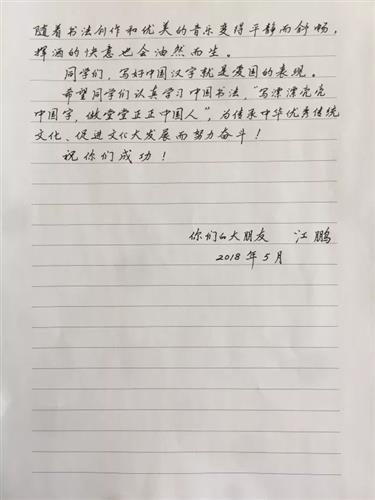 随着书法创作和优美的音乐变得平静而舒畅，
挥洒的快意也会油然而生。
同学们，写好中国汉字就是爱国的表现。
希望同学们认真学习中国书法，“写漂漂亮亮
中国字，做堂堂正正中国人”，为传承中华优秀传统
文化、促进文化大发展而努力奋斗！
祝你们成功！
你们的大朋友 江鹏
2018年5月